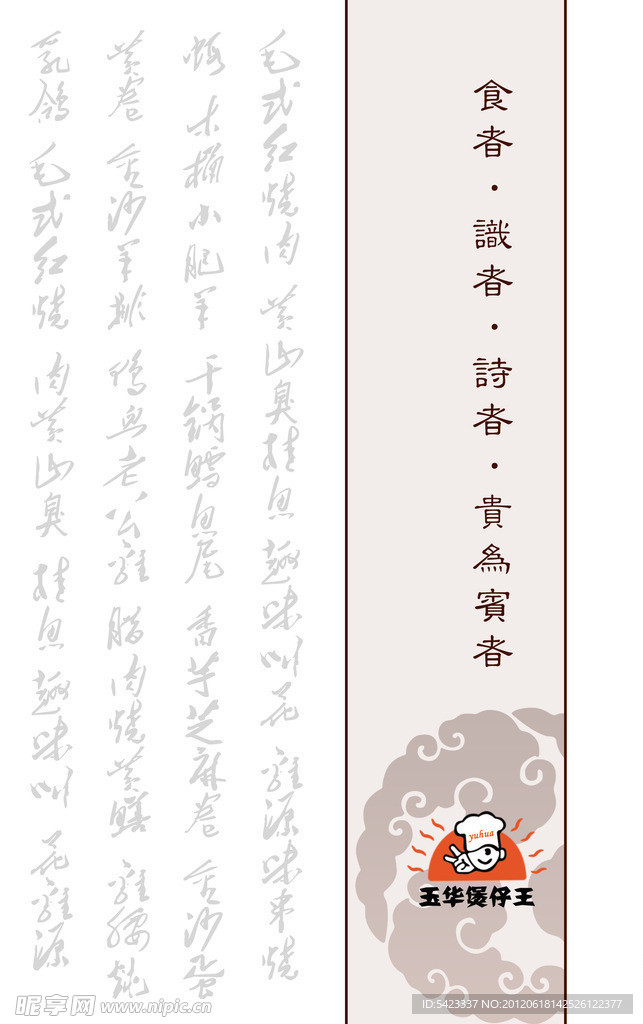 毛式红烧肉 黄山臭桂鱼 趣味叫花鸡 源味串烧
木桶小肥羊 干锅鳕鱼尾 香芋芝麻卷 金沙蛋
黄卷 金沙羊排 鸭血老公鸡 腊肉烧黄鳝 鸡腰
乳鸽 毛式红烧肉 黄山臭桂鱼 趣味叫花鸡 源
食者·識者·詩者·貴為賓者
yuhua
玉华煲仔王
昵享网 www.nipic.cn
ID:5423337 NO:20120618142526122377